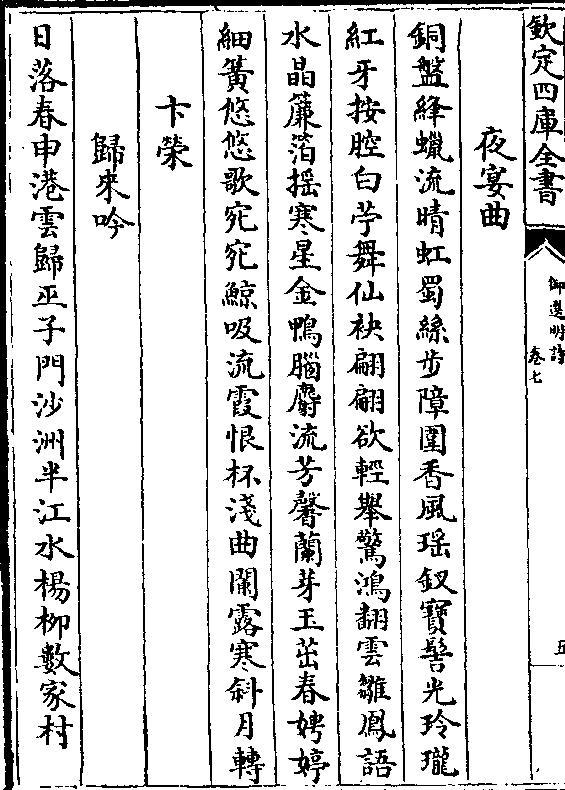 欽定四庫全書
御選明詩
卷七
五
夜宴曲
銅盤絳蠟流晴虹蜀絲步障圍香風瑶釵寶髻光玲瓏
紅牙按腔白苧舞仙袂翩翩欲輕舉驚鴻翻雲雛鳳語
水晶簾箔摇寒星金鴨腦麝流芳馨蘭芽玉茁春娉婷
細簧悠悠歌宛宛鯨吸流霞恨杯淺曲闌露寒斜月轉
卞榮
歸來吟
日落春申港雲歸巫子門沙洲半江水楊柳數家村